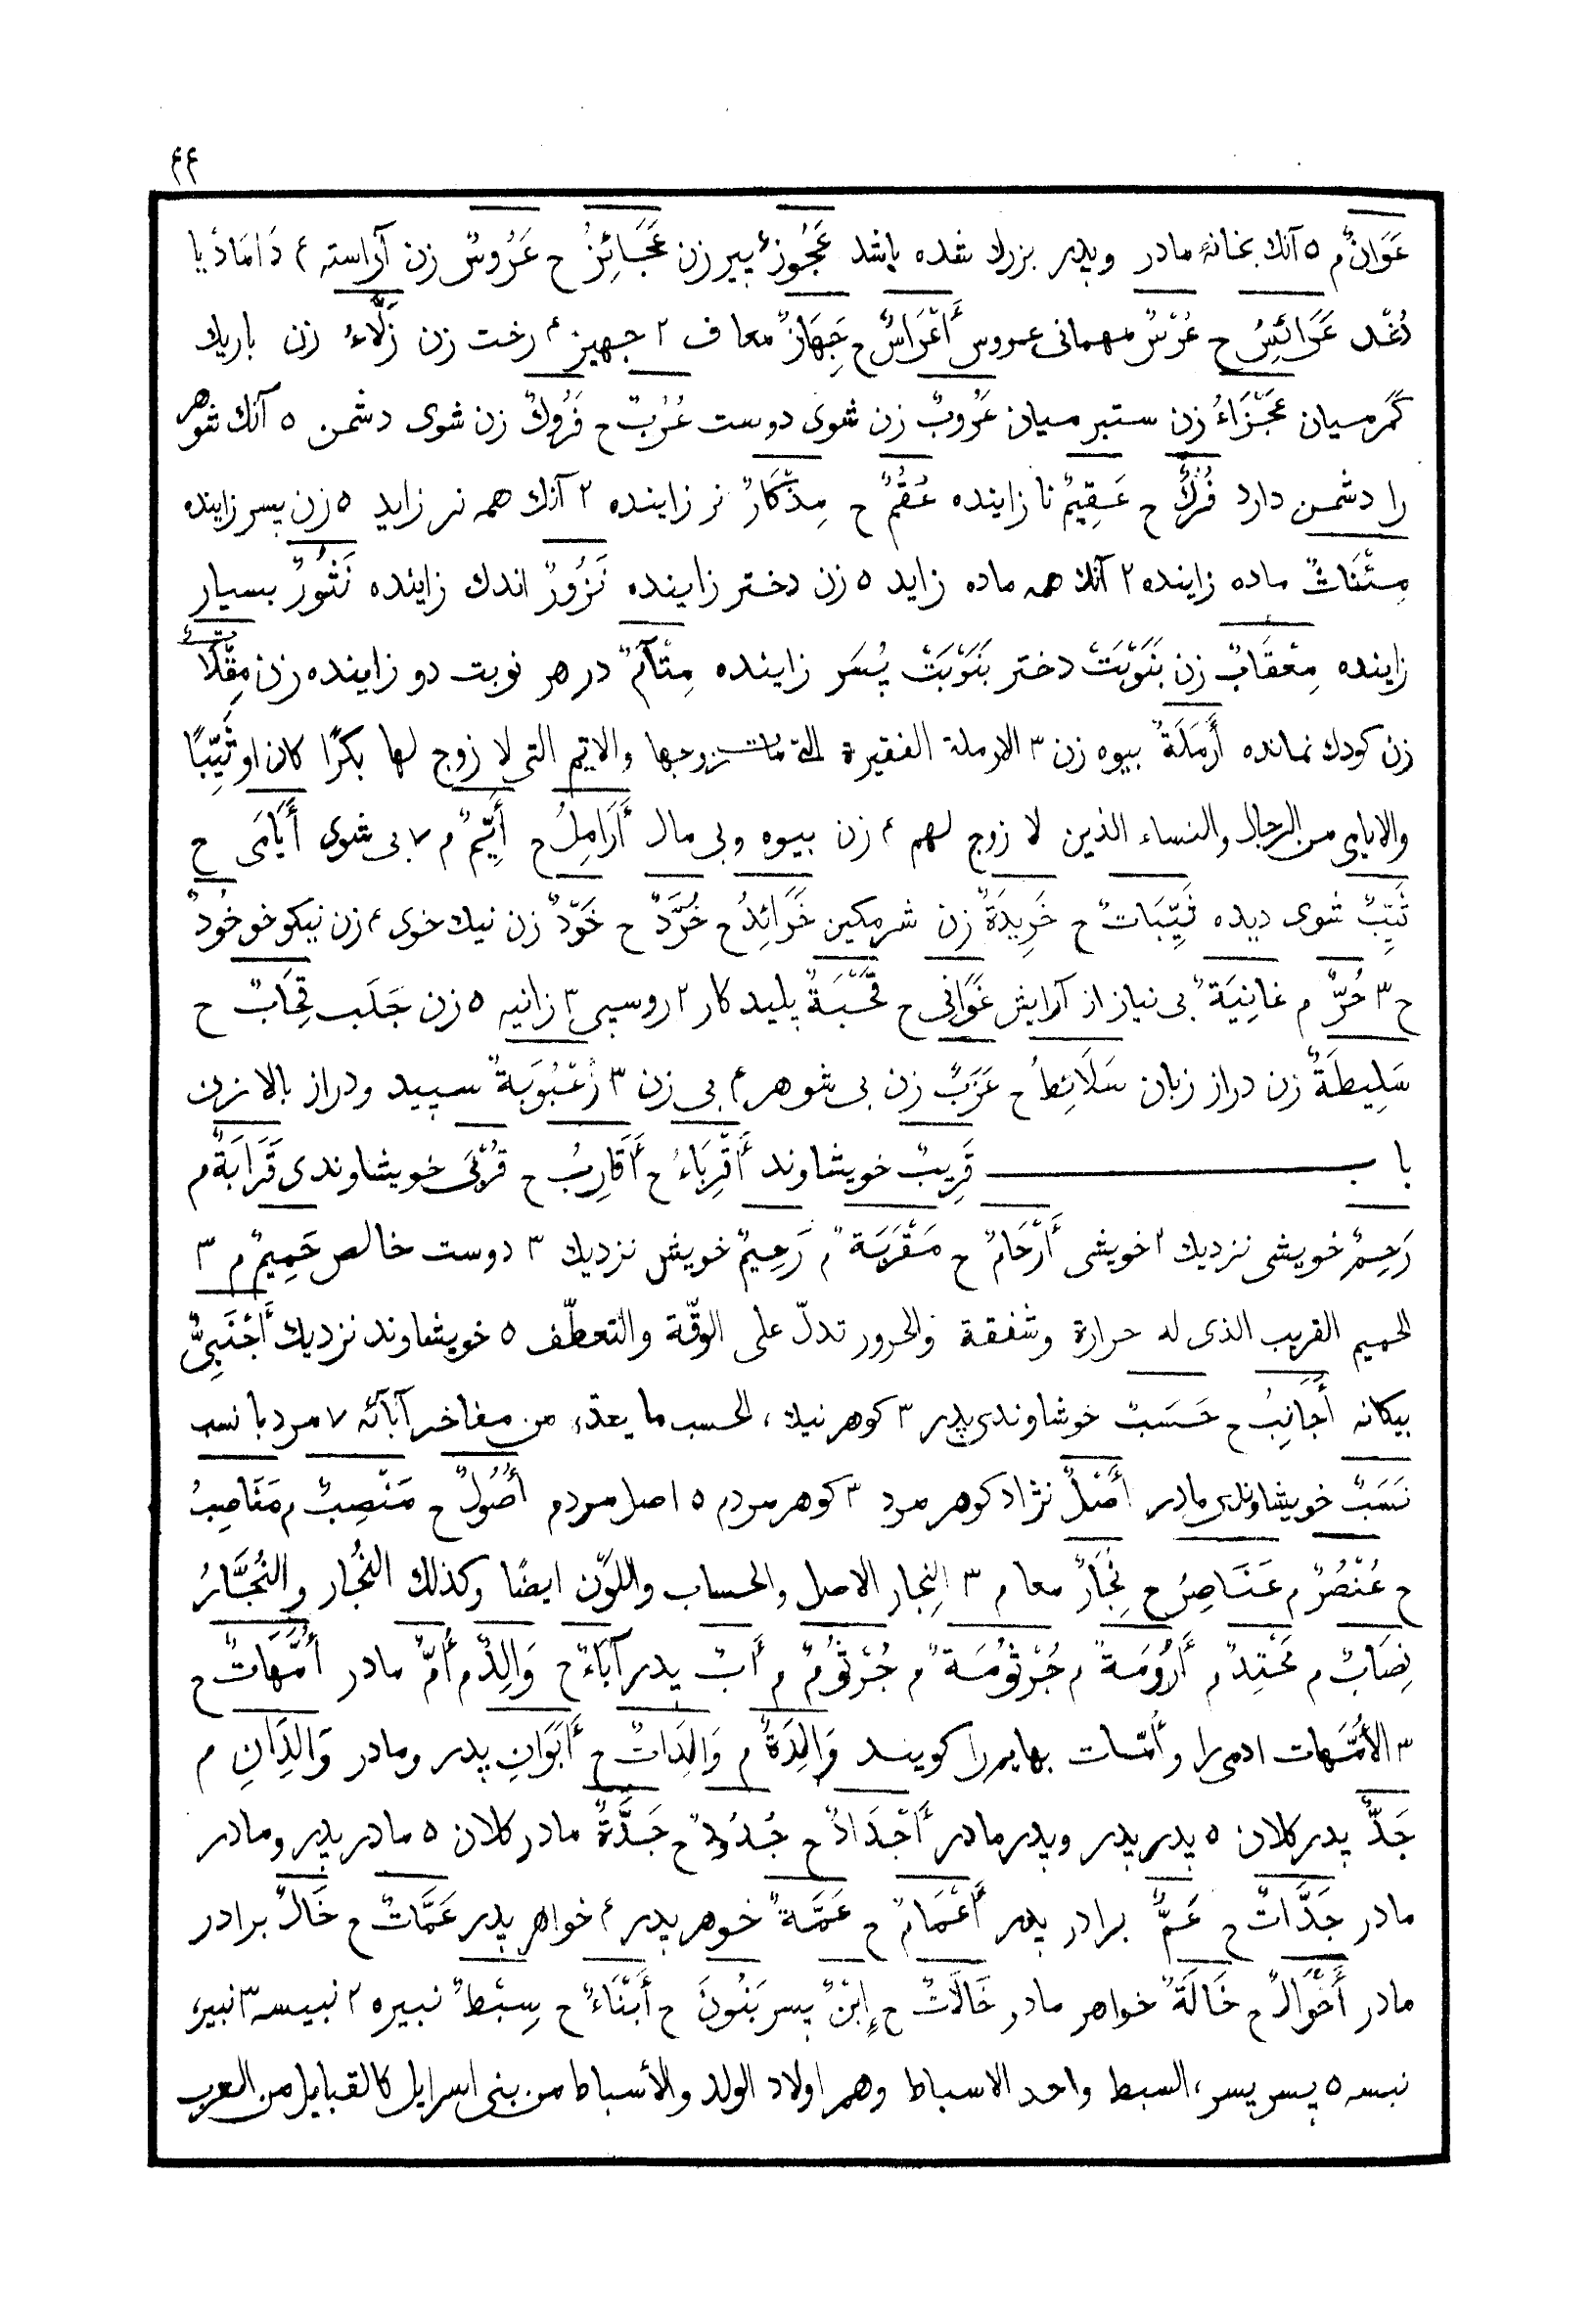 ۴۴
عَوَانٌ م ۵ آنك بخانهٔ مادر وپدر بزرك شده باشد عَجُوزٌ پیر زن عَجَائِزُ ح عَرُوسٌ زن آراسته ۴ دَامَادْ یا
عَرَائِسُ ح عُرْسٌ مهمانی عروس أَعْرَاسٌ ح جِهَازٌ معاف ۲ جهیز ۴ رخت زن زَلَّاءُ زن باریك
كَمَر میان عَجْزَاءُ زن ستبر میان عَرُوبٌ زن شوی دوست عُرُبٌ ح فَرُوكٌ زن شوی دشمن ۵ آنك شوهر
را دشمن دارد فُرُكٌ ح عَقِیمٌ نا زاینده عُقُمٌ ح مِذْكَارٌ نر زاینده ۲ آنك همه نر زاید ۵ زن پسر زاینده
مِئْنَاثٌ ماده زاینده ۲ آنك همه ماده زاید ۵ زن دختر زاینده نَزُورٌ اندك زاینده نَثُورٌ بسیار
زاینده مِعْقَابٌ زن بَنَوْبَتْ دختر بَنَوْبَتْ پُسَر زاینده مِتْآمٌ در هر نوبت دو زاینده زن مِقْلَاتٌ
زن كودك نمانده أَرْمَلَةٌ بیوه زن ۳ الارملة الفقیرة التی مات زوجها والایم التی لا زوج لها بكرًا كان او ثَیِّبًا
والایامی من الرجال والنساء الذین لا زوج لهم ۴ زن بیوه وبی مال أَرَامِلُ ح أَیِّمٌ م ۷ بی شوی أَیَامَی ح
ثَیِّبٌ شوی دیده ثَیِّبَاتٌ ح خَرِیدَةٌ زن شرمكین خَرَائِدُ ح خُرَّدٌ ح خَوْدٌ زن نیك خوی ۴ زن نیكو خو خُودٌ
ح ۳ حُرٌّ م غَانِیَةٌ بی نیاز از آرایش غَوَانِی ح قَحْبَةٌ پلید كار ۲ روسپی ۳ زانیه ۵ زن جَلَب قِحَابٌ ح
سَلِیطَةٌ زن دراز زبان سَلَائِطُ ح عَزَبٌ زن بی شوهر ۴ بی زن ۳ رُعْبُوبَةٌ سپید ودراز بالا زن
باب قَرِیبٌ خویشاوند أَقْرِبَاءُ ح أَقَارِبُ ح قُرْبَی خویشاوندی قَرَابَةٌ م
رَحِمٌ خویشی نزدیك ۲ خویشی أَرْحَامٌ ح مَقْرَبَةٌ م رَحِیمٌ خویش نزدیك ۳ دوست خالص حَمِیمٌ م ۳
الحمیم القریب الذی له حرارة وشفقة والحرور تدلّ علی الرقّة والتعطّف ۵ خویشاوند نزدیك أَجْنَبِیٌّ
بیكانه أَجَانِبُ ح حَسَبٌ خوشاوندی پدر ۳ كوهر نیك، الحسب ما یعدّه من مفاخر آبائه ۷ مرد با نسب
نَسَبٌ خویشاوندی مادر أَصْلٌ نژاد كوهر مرد ۳ كوهر مردم ۵ اصل مردم أُصُولٌ ح مَنْصِبٌ م مَنَاصِبُ
ح عُنْصُرٌ م عَنَاصِرُ ح نِجَارٌ معا م ۳ النِجار الاصل والحساب واللَوْن ایضًا وكذلك النُجار والنُجَّارُ
نِصَابٌ م مَحْتِدٌ م أَرُومَةٌ م جُرْثُومَةٌ م جُرْثُومٌ م أَبٌ پدر آبَاءٌ ح وَالِدٌ م أُمٌّ مادر أُمَّهَاتٌ ح
۳ الأمَّهات ادمی را وأمّات بهایم را كویند وَالِدَةٌ م وَالِدَاتٌ ح أَبَوَانِ پدر ومادر وَالِدَانِ م
جَدٌّ پدر كلان ۵ پدر پدر وپدر مادر أَجْدَادٌ ح جُدُودٌ ح جَدَّةٌ مادر كلان ۵ مادر پدر ومادر
مادر جَدَّاتٌ ح عَمٌّ برادر پدر أَعْمَامٌ ح عَمَّةٌ خوهر پدر ۴ خواهر پدر عَمَّاتٌ ح خَالٌ برادر
مادر أَخْوَالٌ ح خَالَةٌ خواهر مادر خَالَاتٌ ح إِبْنٌ پسر بَنُونَ ح أَبْنَاءٌ ح سِبْطٌ نبیره ۲ نبیسه ۳ نبیره
نبسه ۵ پسر پسر، السبط واحد الاسباط وهم اولاد الولد والأسباط من بنی اسرایل كالقبایل من العرب